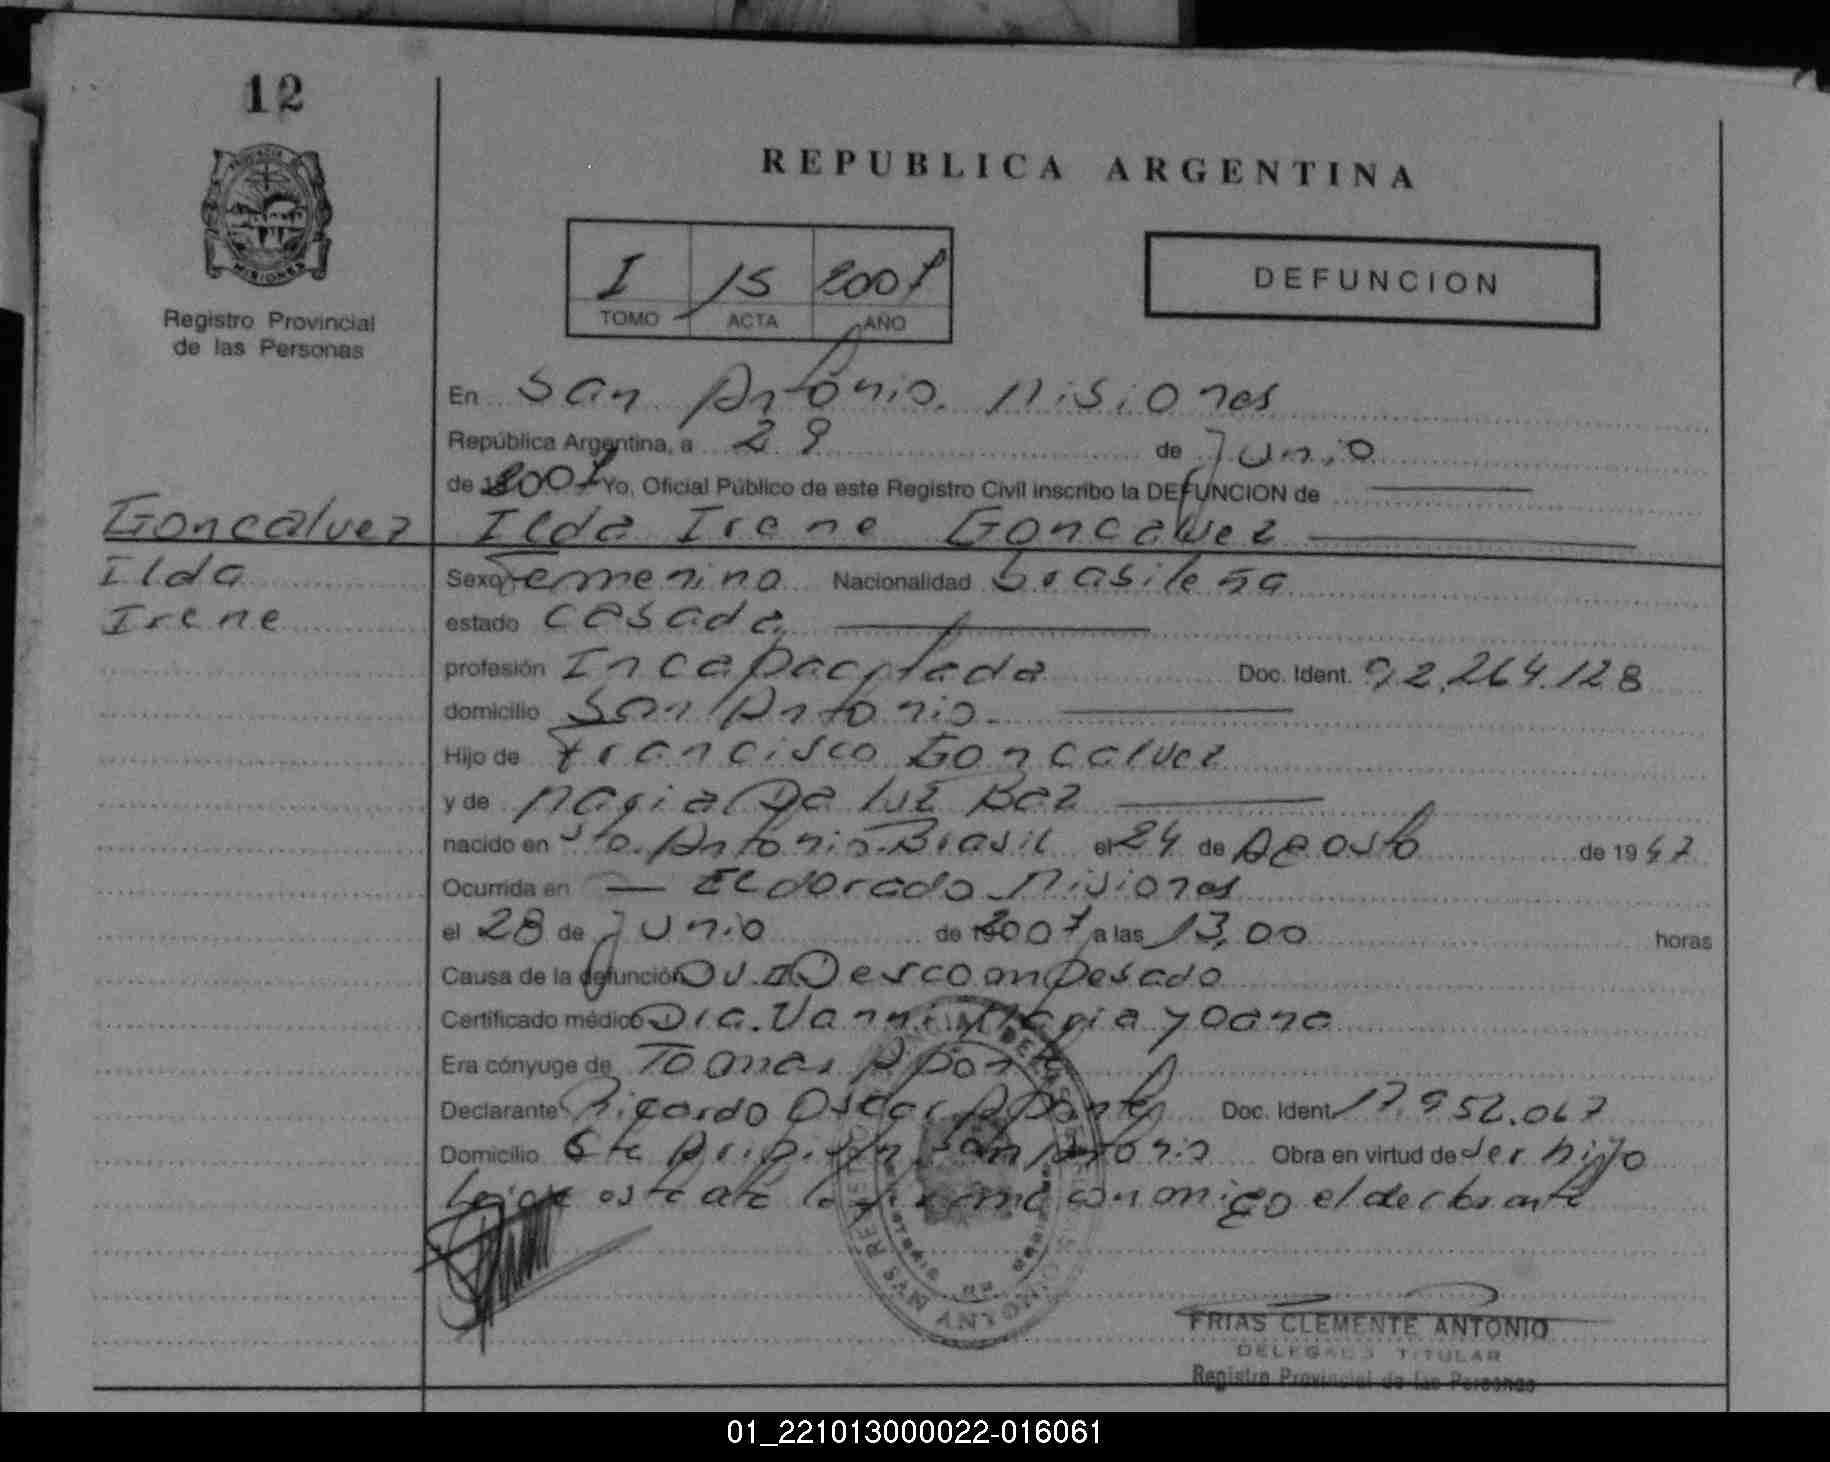 12
PROVINCIA DE
MISIONES
Registro Provincial
de las Personas
REPUBLICA ARGENTINA
I 15 2007
TOMO ACTA AÑO
DEFUNCION
En San Antonio. Misiones
República Argentina, a 29 de Junio
de 2007 Yo, Oficial Público de este Registro Civil inscribo la DEFUNCION de
Goncalvez Ilda Irene Goncalvez
Ilda
Irene
Sexo Femenino Nacionalidad brasileña
estado casada
profesión Incapacitada Doc. Ident. 92.264.128
domicilio San Antonio.
Hijo de Francisco Goncalvez
y de Maria Da luz Baz
nacido en Sto. Antonio-Brasil el 24 de Agosto de 1947
Ocurrida en Eldorado Misiones
el 28 de Junio de 2007 a las 13,00 horas
Causa de la defunción Descompesado
Certificado médico Dra. Vanni Maria yoana
Era cónyuge de Tomas Aponte
Declarante Ricardo Oscar Aponte Doc. Ident. 17.952.067
Domicilio San Antonio Obra en virtud de ser hijo
este acta la firma conmigo el declarante
FRIAS CLEMENTE ANTONIO
DELEGADO TITULAR
Registro Provincial de las Personas
01_221013000022-016061